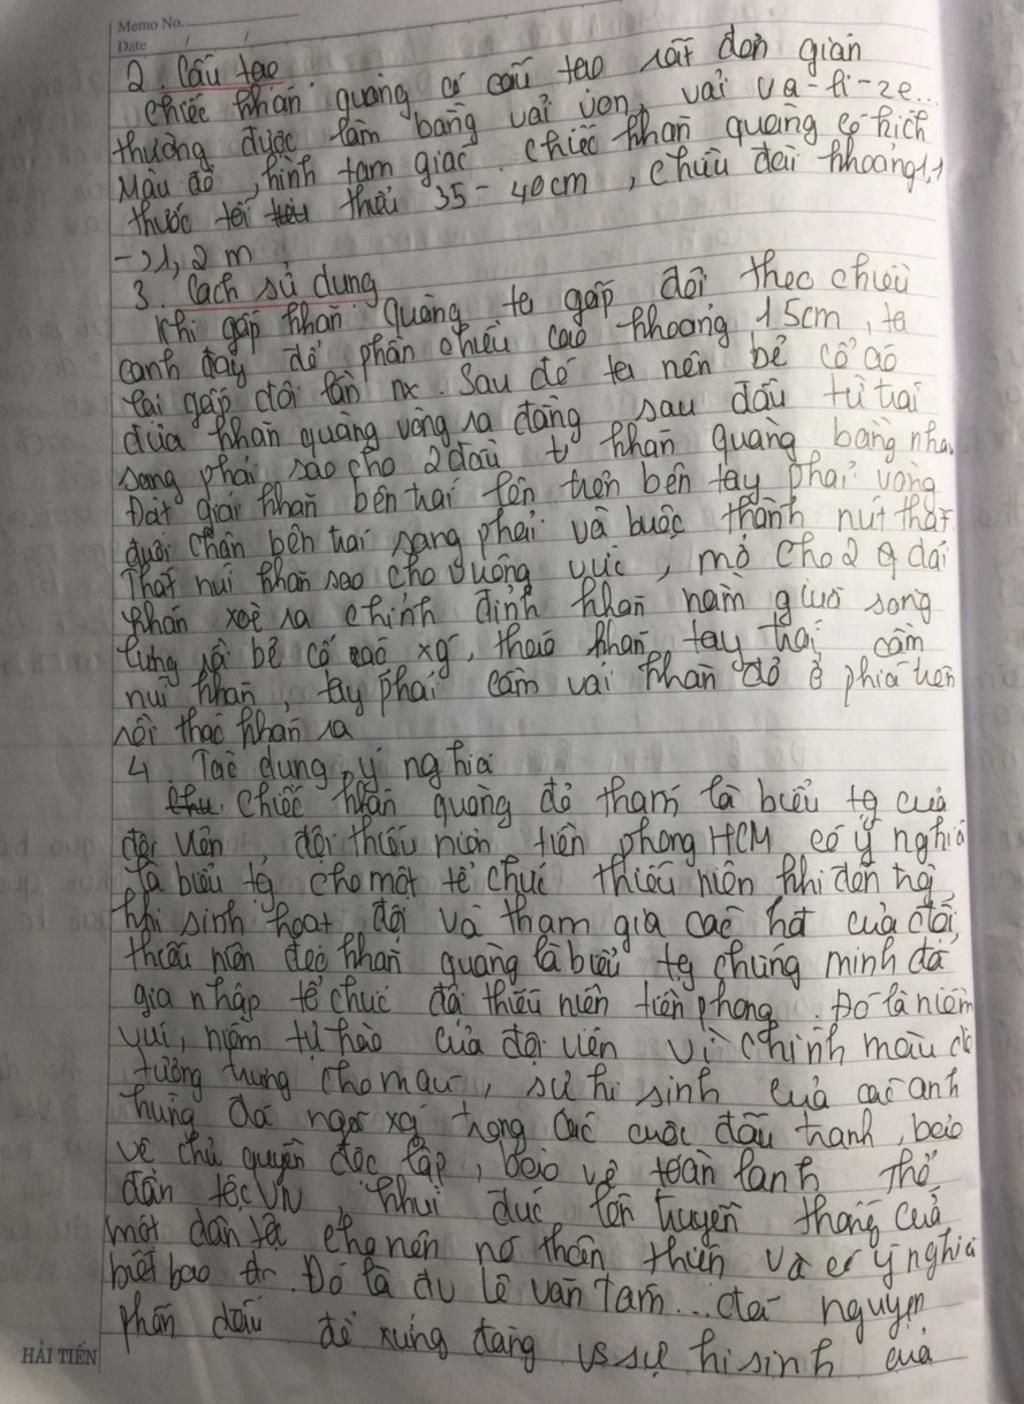 Memo No.
Date / /
2. Cấu tạo
Chiếc khăn quàng có cấu tạo rất đơn giản
thường được làm bằng vải von, vải va-ti-ze...
Màu đỏ, hình tam giác. Chiếc khăn quàng có kích
thước tối thiểu 35-40cm, chiều dài khoảng 1,1
-> 1,2 m
3. Cách sử dụng
Khi gấp khăn quàng ta gấp đôi theo chiều
cạnh đáy để phần chiều cao khoảng 15cm, ta
lại gấp đôi lần nx. Sau đó ta nên bẻ cổ áo
đưa khăn quàng vòng ra đằng sau đầu từ trái
sang phải sao cho 2 đầu khăn quàng bằng nhau
Đặt giải khăn bên trái lên trên bên tay phải vòng
đuôi chăn bên trái sang phải và buộc thành nút thắt
Thắt nút khăn sao cho vuông vức, mở cho 2 dải
khăn xoè ra chỉnh đỉnh khăn nằm giữa song
lưng rồi bẻ cổ áo xg, tháo khăn, tay trái cầm
nút khăn, tay phải cầm vải khăn đỏ ở phía trên
rồi tháo khăn ra
4. Tác dụng, ý nghĩa
Chiếc khăn quàng đỏ thắm là biểu tg của
đội viên, đội thiếu niên tiền phong HCM có ý nghĩa
là biểu tg cho một tổ chức thiếu niên khi đến trg,
khi sinh hoạt đội và tham gia các hđ của đội,
thiếu niên đeo khăn quàng là biểu tg chứng minh đã
gia nhập tổ chức đội thiếu niên tiền phong. Đó là niềm
vui, niềm tự hào của đội viên vì chính màu đỏ
tưởng trưng cho máu, sự hi sinh của các anh
hùng đã ngã xg trong các cuộc đấu tranh, bảo
vệ chủ quyền độc lập, bảo vệ toàn lãnh thổ
dân tộc VN, hun đúc lên truyền thống của
một dân tộc cho nên nó thân thiện và có ý nghĩa
biết bao. Đó là av Lê Văn Tám... đã nguyện
phấn đấu để xứng đáng vs sự hi sinh của
HẢI TIẾN